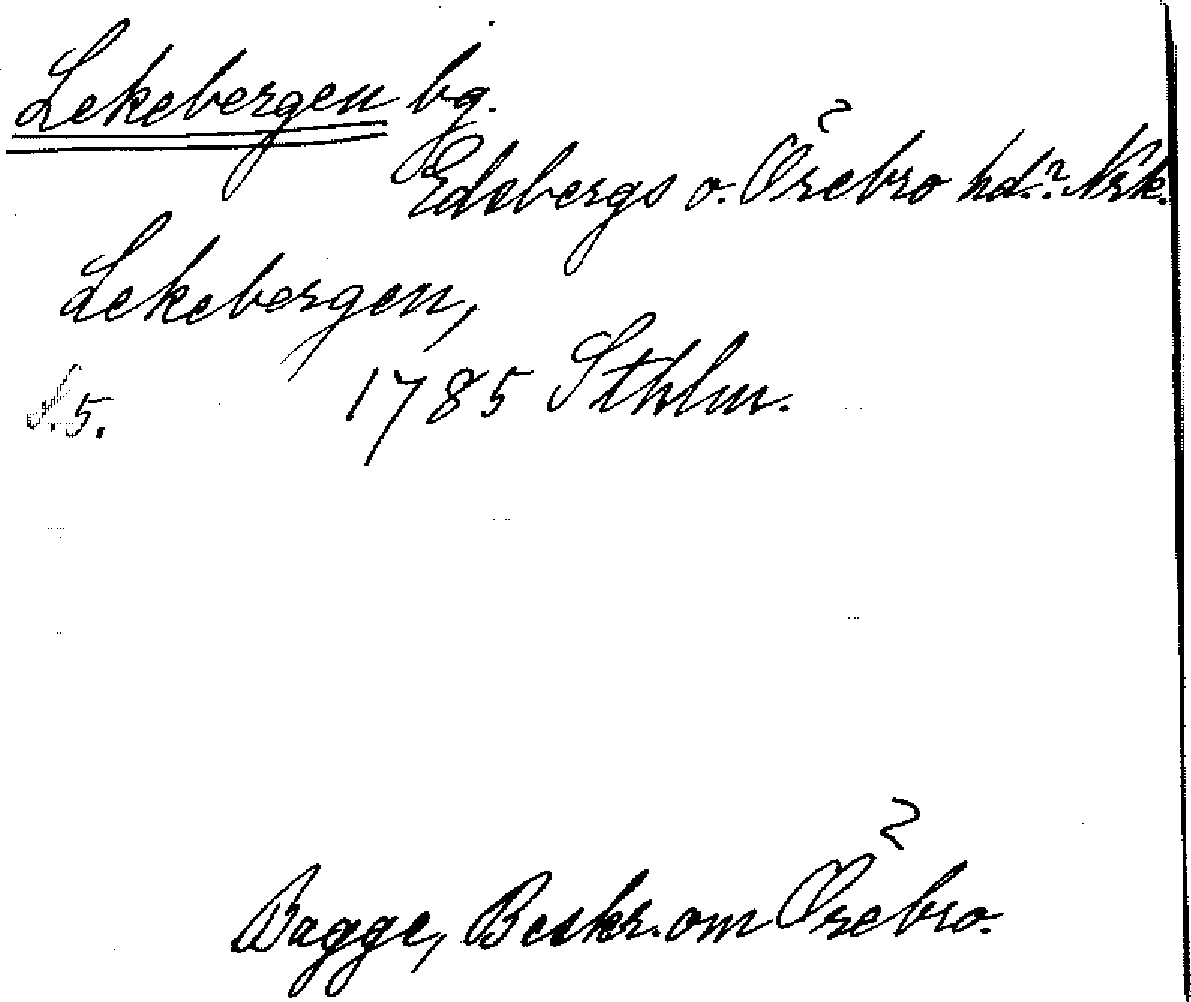 Lekebergen bg.
Edsbergs o. Örebro hd.? Nrk.
Lekebergen,
S. 5. 1785 Sthlm.
Bagge, Beskr. om Örebro.